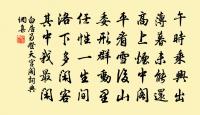 午時乘興出
薄暮未能還
高上煙中閣
平看雪後山
委形群動里
任性一生間
洛下多閑客
其中我最閑
白居易登天宮閣詞典
網集